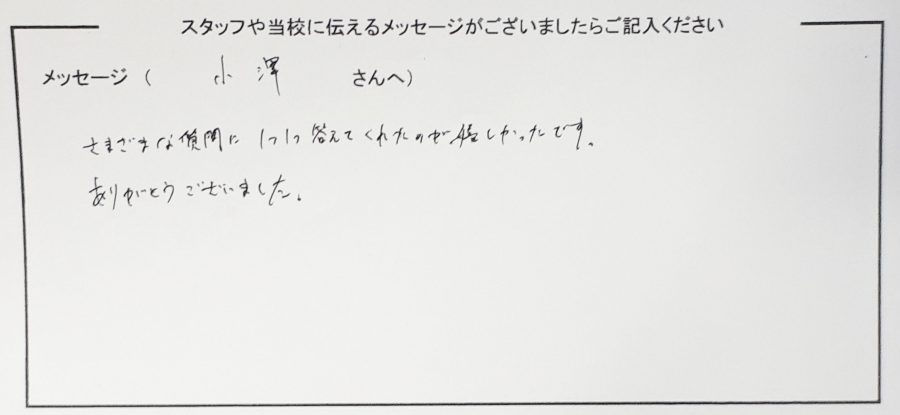 スタッフや当校に伝えるメッセージがございましたらご記入ください
メッセージ（ 小澤 さんへ）
さまざまな質問に1つ1つ答えてくれたのが嬉しかったです。
ありがとうございました。